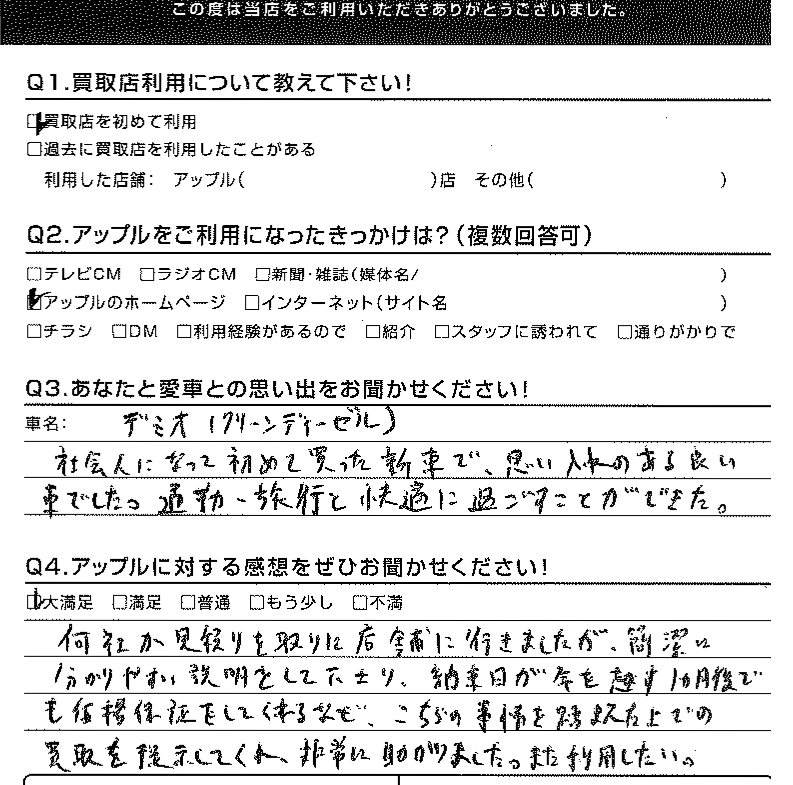 この度は当店をご利用いただきありがとうございました。
Q1.買取店利用について教えて下さい!
□買取店を初めて利用
□過去に買取店を利用したことがある
利用した店舗: アップル( )店 その他( )
Q2.アップルをご利用になったきっかけは?(複数回答可)
□テレビCM □ラジオCM □新聞・雑誌(媒体名/ )
□アップルのホームページ □インターネット(サイト名 )
□チラシ □DM □利用経験があるので □紹介 □スタッフに誘われて □通りがかりで
Q3.あなたと愛車との思い出をお聞かせください!
車名: デミオ (クリーンディーゼル)
社会人になって初めて買った新車で、思い入れのある良い
車でした。通勤・旅行と快適に過ごすことができた。
Q4.アップルに対する感想をぜひお聞かせください!
□大満足 □満足 □普通 □もう少し □不満
何社か見積りを取りに店舗に行きましたが、簡潔に
分かりやすい説明をして下さり、納車日が年を越す1ヵ月後で
も価格保証をしてくれるなど、こちらの事情を踏まえた上での
買取を提示してくれ、非常に助かりました。また利用したい。